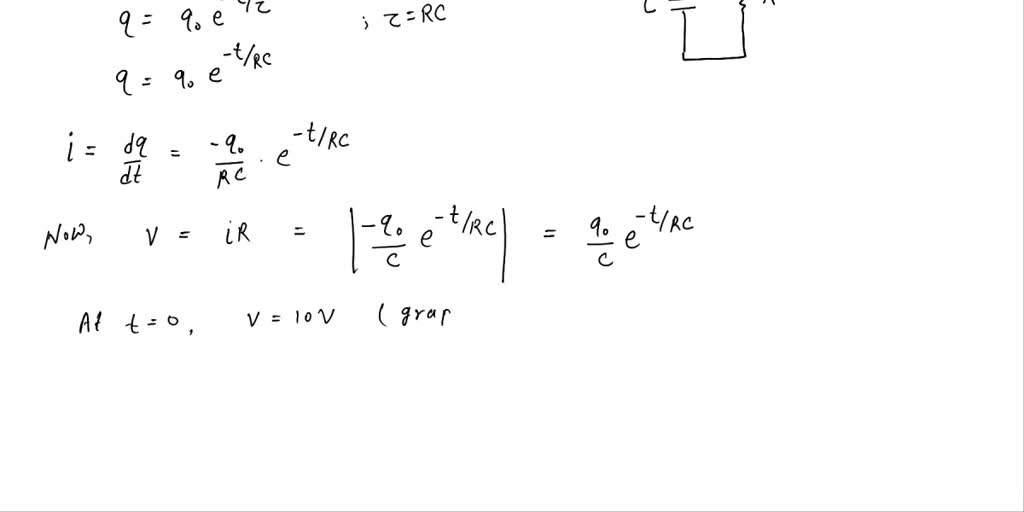 q = q₀ e^-t/τ ; τ = RC
C R
q = q₀ e^-t/RC
i = dq/dt = -q₀/RC · e^-t/RC
Now, V = iR = |-q₀/C e^-t/RC| = q₀/C e^-t/RC
At t = 0, V = 10V (grap